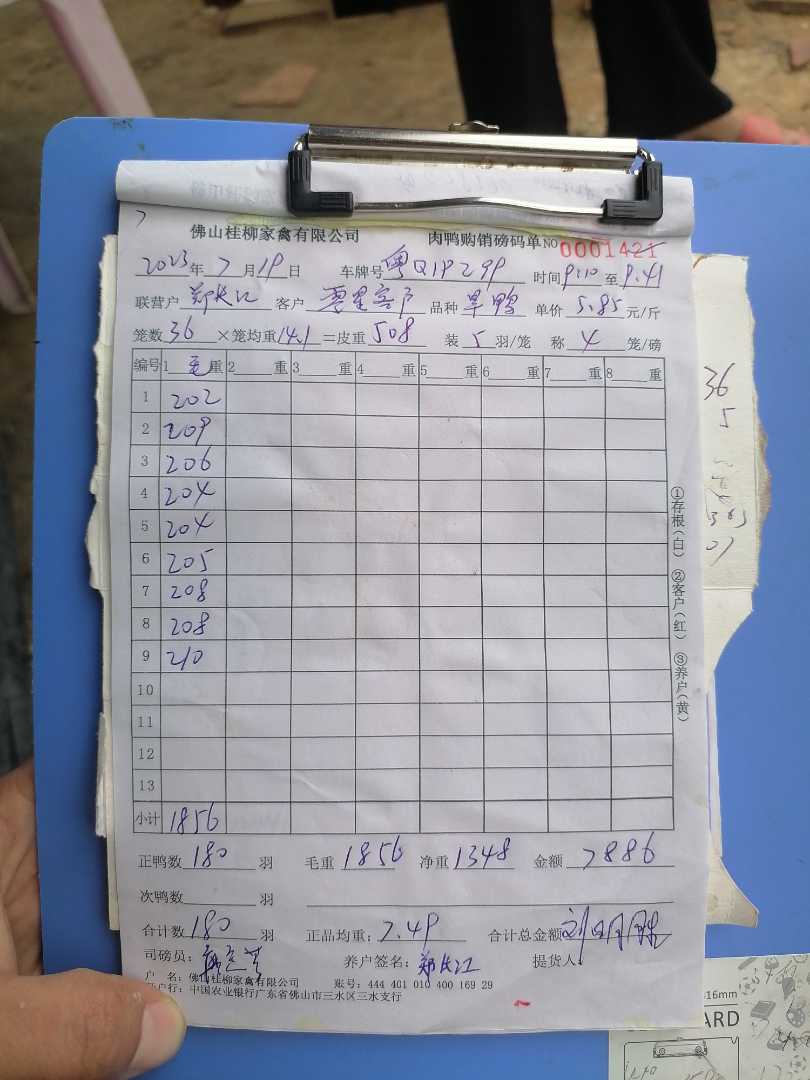 佛山桂柳家禽有限公司 肉鸭购销磅码单 NO 0001421
2023年7月19日 车牌号粤Q1P299 时间9:10至9.41
联营户郑长江 客户零星客户 品种旱鸭 单价5.85元/斤
笼数36×笼均重14.1=皮重508 装5羽/笼 称4笼/磅
编号 1毛重 2重 3重 4重 5重 6重 7重 8重
1 202
2 209
3 206
4 204
5 204
6 205
7 208
8 208
9 210
10
11
12
13
小计 1856
①存根(白) ②客户(红) ③养户(黄)
正鸭数180羽 毛重1856 净重1348 金额7886
次鸭数 羽
合计数180羽 正品均重:7.49 合计总金额
司磅员: 养户签名:郑长江 提货人
户 名:佛山桂柳家禽有限公司 账号:444 401 010 400 169 29
户行:中国农业银行广东省佛山市三水区三水支行
36
5
16mm
ARD